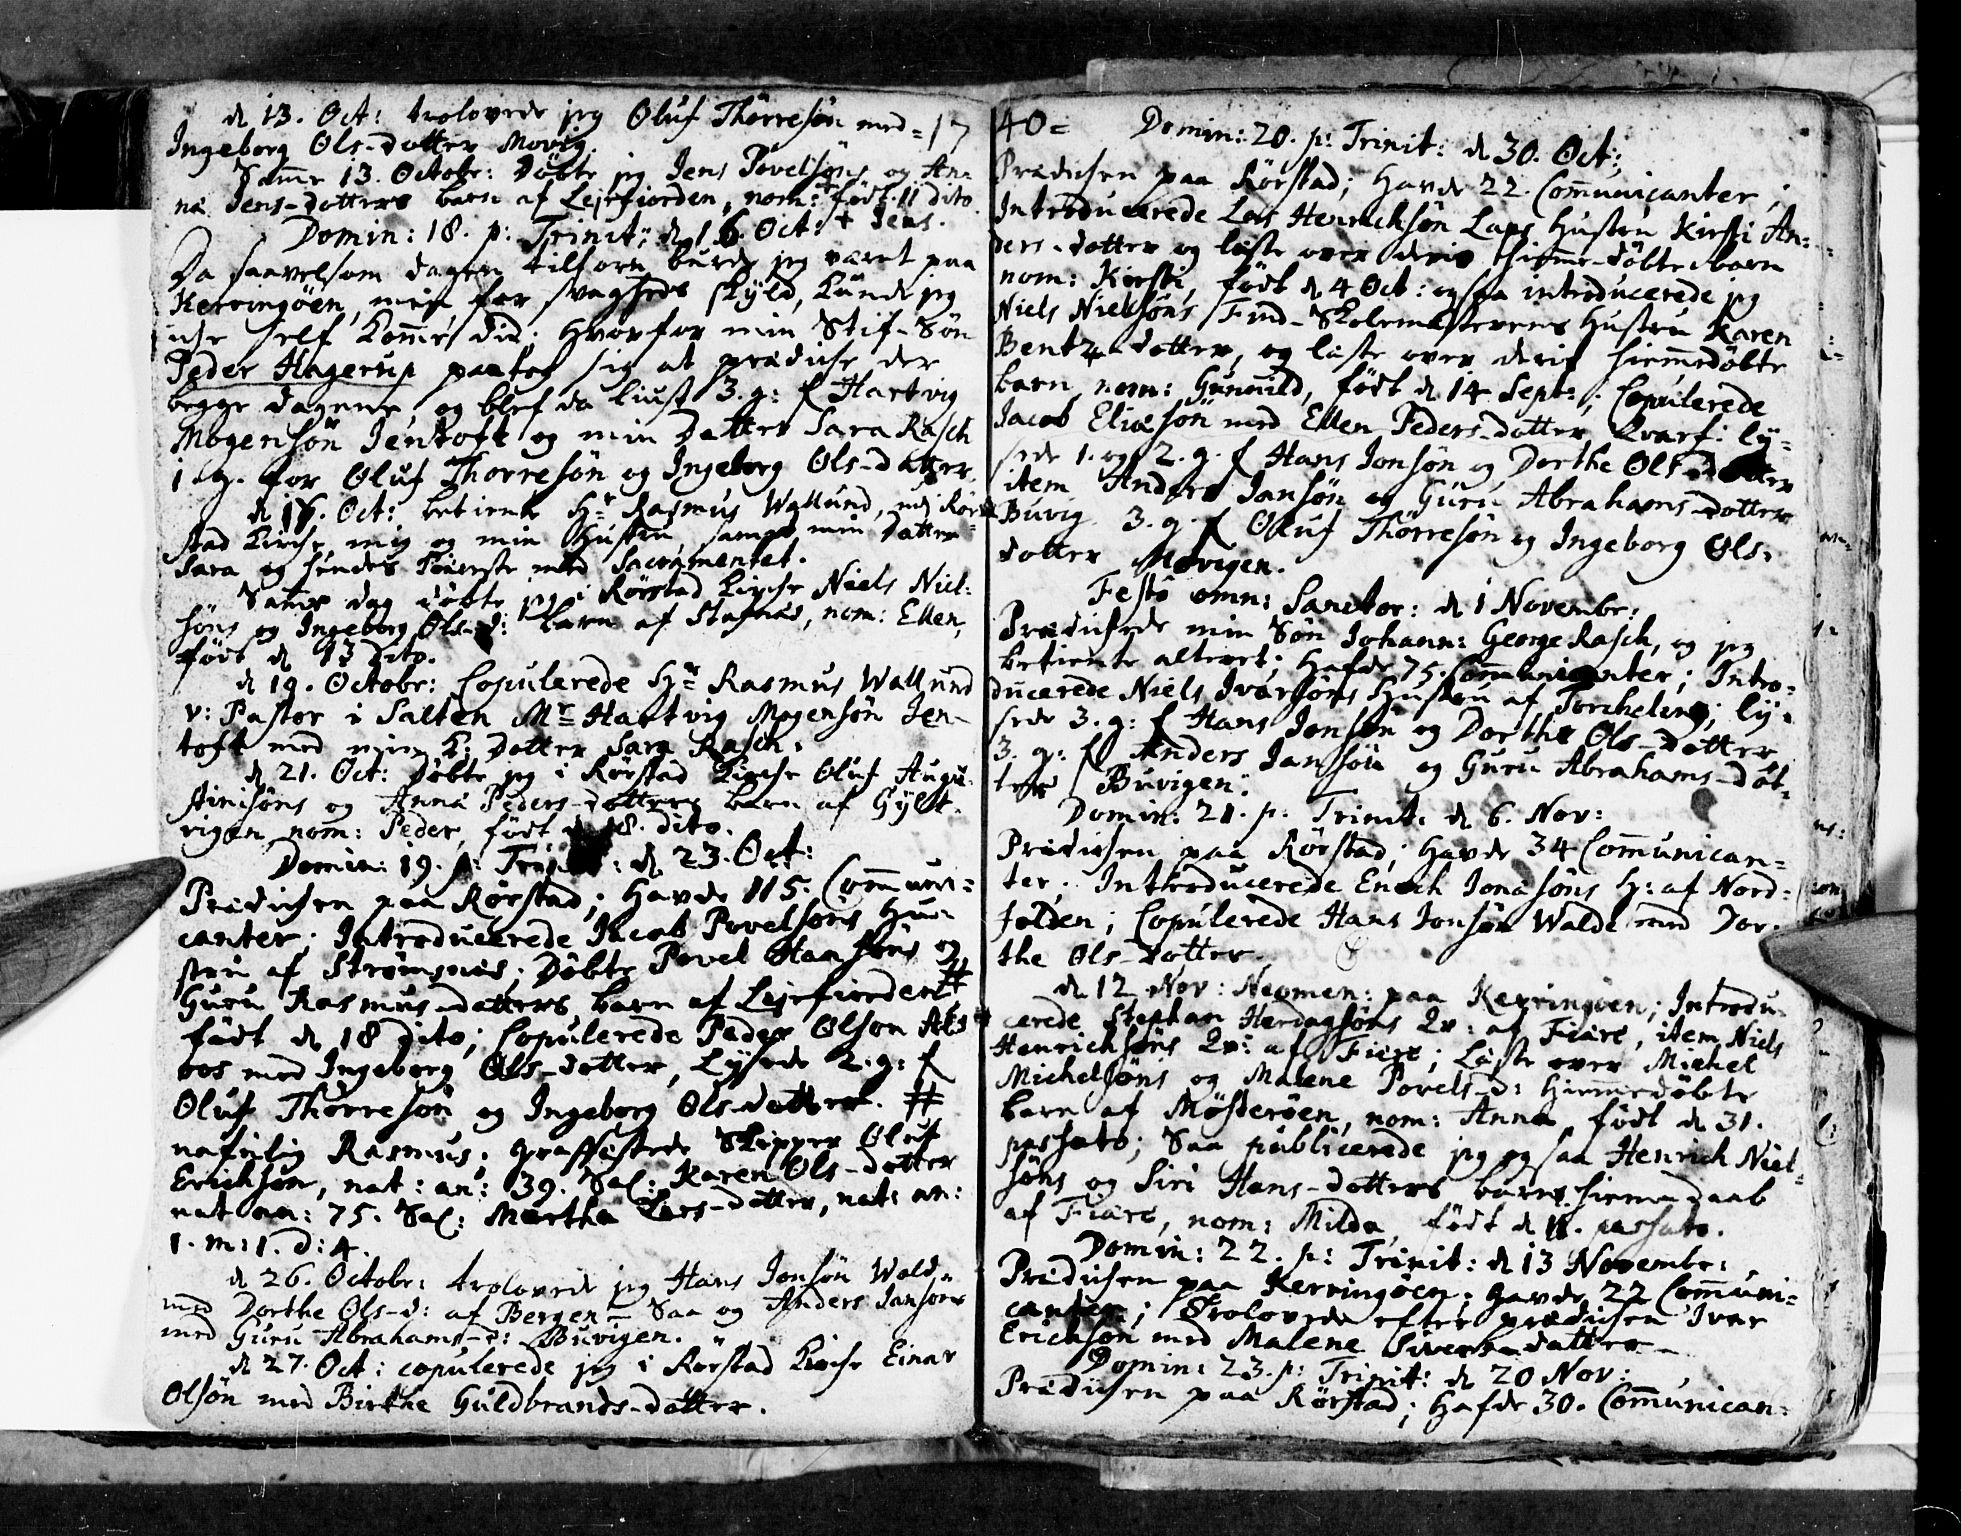 d. 13. Oct: trolovede jeg Oluf Thörresön med = 17
Ingeborg Ols-dotter Movig.
Samme 13. Octobr: Döbte jeg Jens Povelsöns og An-
na Jens-dotters barn af Lejrfiorden, nom: födt 11 dito.
Domin: 18. p: Trinit: d. 16. Oct: + Jens.
Da saavelsom dagen tilforn burde jeg været paa
Kerringöen, men for svagheds skyld, kunde jeg
icke self komme did; hvorfor min Stif-Sön
Peder Hagerup paatog sig at prædiche der
begge dagene, og blef da liust 3. g: f Hartvig
Mogensön Jentoft og min Datter Sara Rasch
1. g. for Oluf Thorresön og Ingeborg Ols-datter.
d. 18. Oct: betiente Hr Rasmus Wallund, udj Rör-
stad Kirche mig og min Hustru, samt min Datter
Sara og hendes Fæstemand med Sacramentet.
Samme dag döbte jeg i Rörstad Kirche Niels Niel-
söns og Ingeborg Ols-d: barn af Stafnæs, nom: Ellen,
födt d. 13 dito.
d. 19. Octobr: Copulerede Hr Rasmus Wallund
v: Pastor i Salten Mr Hartvig Mogensön Jen-
toft med min k: Datter Sara Rasch.
d. 21. Oct: Döbte jeg i Rörstad Kirche Oluf Augu-
stinisöns og Anna Peders-dotters barn af Gylt-
vigen nom: Peder, födt d. 18. dito.
Domin: 19. p: Trinit: d. 23. Oct:
Prædichen paa Rörstad; Havde 115. Communi-
canter; Introducerede Jacob Povelsöns Hu-
stru af Strömsnæs; Döbte Povel Hansöns og
Guru Rasmus-datters barn af Lejrfiorden #
födt d. 18 dito; Copulerede Peder Olson Aks-
vos med Ingeborg Ols-dotter, Lysede 2. g: f
Oluf Thorresön og Ingeborg Ols-dotter. #
nafnlig Rasmus. Graffæstede Skipper Oluf
Erichsön, nat: an: 39. Sal: Karen Ols-dotter
nat an: 75. Sal: Martha Lars-dotter, nat: an:
1. m: 1. d: 4.
d. 26. Octobr: trolovede jeg Hans Jonsön Wold-
med Dorthe Ols-d: af Bergen - Saa og Anders Jansön
med Guru Abrahams-d: Buvigen.
d. 27. Oct: copulerede jeg i Rörstad Kirche Einar
Olsön med Birthe Guldbrands-datter.
40 = Domin: 20. p: Trinit: d. 30. Oct:
Prædichen paa Rörstad; Havde 22. Communicanter;
Introducerede Lars Henrichsön Laps Hustru Kirsti An-
ders-dotter og læste over deris hiemme-döbte barn
nom: Kirsti, födt d. 4 Oct: og saa introducerede jeg
Niels Nielsöns Find-Skolemesterens Hustru Karen
Bentz-dotter, og læste over deris hiemmedöbte
barn, nom: Gunnild, födt d. 14 Sept:; Copulerede
Jacob Eliæsön med Ellen Peders-dotter Kvarf: ly-
sede 1. og 2. g. f Hans Jonsön og Dorthe Ols-dotter
item Anders Jansön og Guru Abrahams-dotter
Buvig. 3. g. f Oluf Thörresön og Ingeborg Ols-
dotter Movigen.
Festo omn: Sanctor: d. 1 Novembr:
Prædichede min Sön Johann: George Rasch, og jeg
betiente alteret; Hafde 75. Communicanter; Intro-
ducerede Niels Ivarsöns Hustru af Torchelens; ly-
sede 3. g: f Hans Jonsön og Dorthe Ols-Dotter
3. g: f Anders Jansön og Guru Abrahams-Dot-
ter Buvigen.
Domin: 21. p: Trinit: d. 6. Nov:
Prædichen paa Rörstad; Havde 34 Communican-
ter. Introducerede Enoch Jonasöns H: af Nord-
folden; Copulerede Hans Jonsön Walde med Dor-
the Ols-Dotter.
d. 12 Nov: Neomen: paa Kerringöen; Introdu-
cerede Stephan Herdagsöns Qv: af Fiære, item Niels
Henrichsöns Qv: af Fiære; Læste over Michel
Michelsöns og Malene Povels-d: hiemmedöbte
barn af Mösteröen, nom: Anna födt d. 31.
passato; Saa publicerede jeg og saa Henrich Niel-
söns og Siri Hans-dotters barns hiemedaab
af Fiære, nom: Milda, födt d. 18. passato.
Domin: 22. p: Trinit: d. 13 Novembr:
Prædichen paa Kerringöen; havde 22 Communi-
canter; Trolovede efter prædichen Ivar
Erichsön med Malene Siverts-datter -
Domin: 23. p: Trinit: d. 20 Nov:
Prædichen paa Rörstad; Hafde 30. Communican-